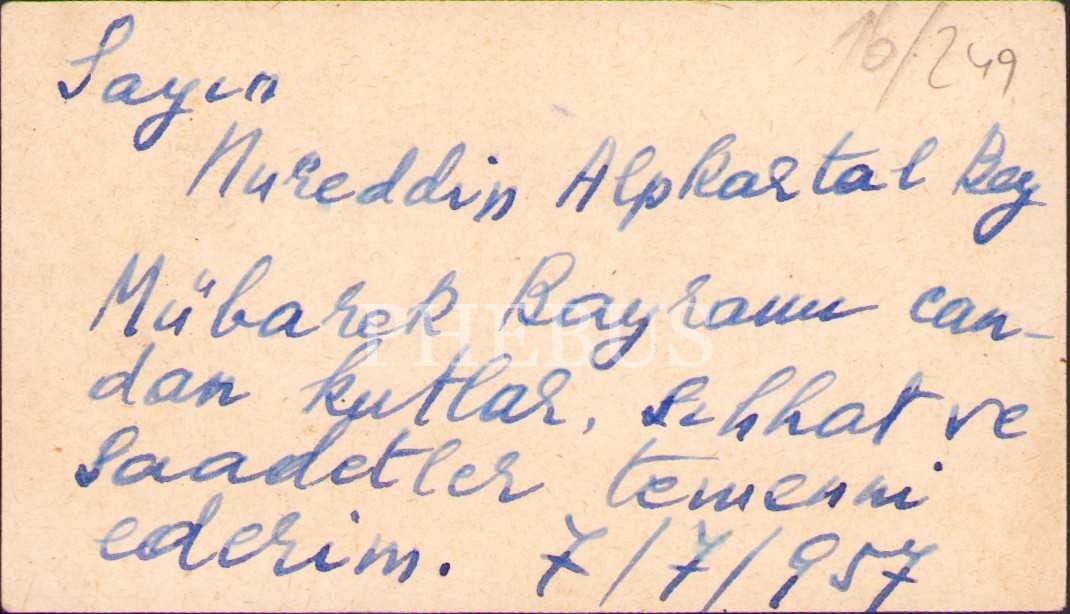 16/249
Sayın
Nureddin Alpkartal Bey
Mübarek Bayramı can-
dan kutlar, sıhhat ve
PHEBUS
saadetler temenni
ederim. 7/7/957